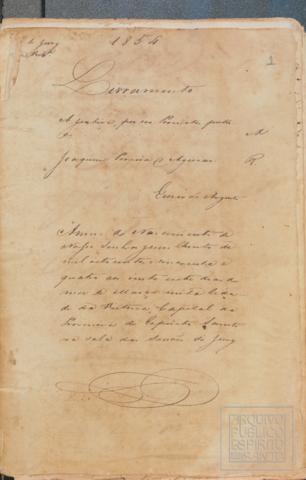 1854
1
Livramento
A Justiça, por seu Promotor publico
A
Joaquim Pereira d'Aguiar
R
Escrivão
Anno do Nascimento de
Nosso Senhor Jesus Christo de
mil oitocentos cincoenta e
quatro aos vinte
mez de Março nesta Cida
de da Victoria Capital da
Provincia do Espirito Santo
na sala das do Jury
ARQUIVO
PÚBLICO
ESPÍRITO
SANTO